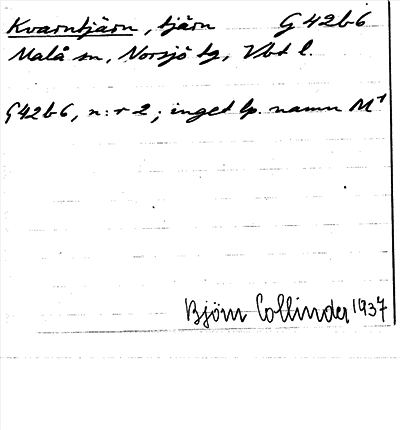 Kvarntjärn, tjärn G 42 b 6
Malå sn, Norsjö tg, Vbt l.
G 42 b 6, n:r 2; inget lp. namn M¹
Björn Collinder 1937